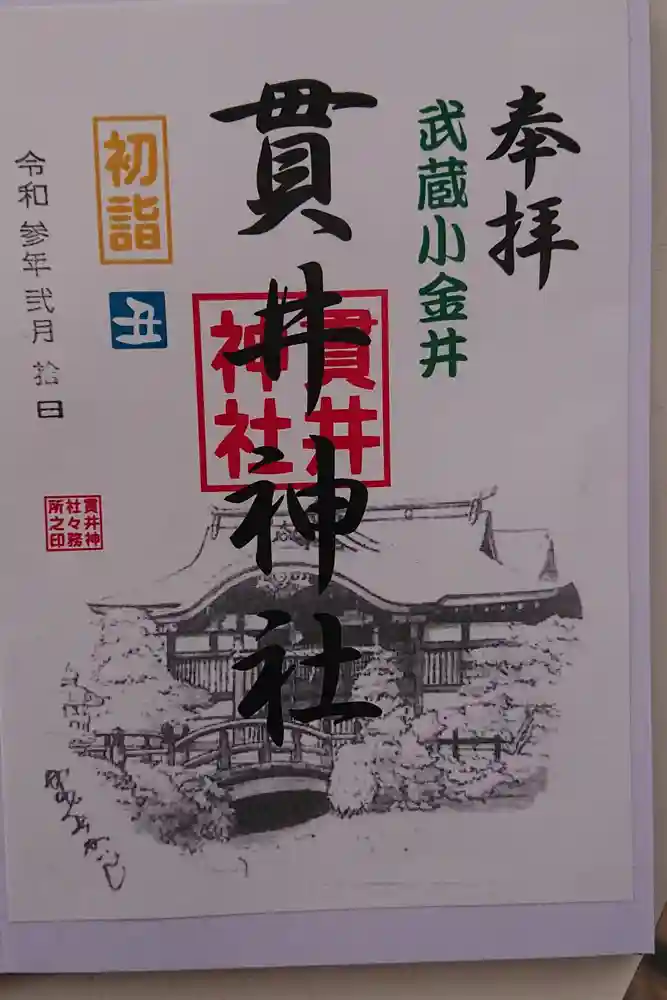 奉拝
武蔵小金井
貫井神社
貫井
神社
初詣
丑
令和参年弐月拾日
貫井神
社々務
所之印